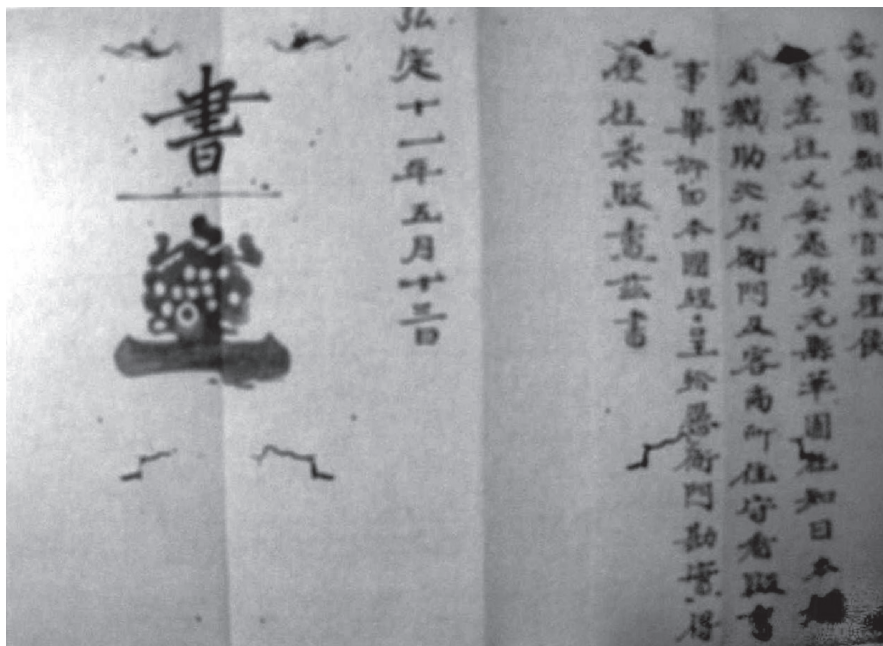 安南國都堂官文理侯
差往乂安處興元縣華園社知日本
有助右衙門及客商所住守看販賣
事畢仍回本國經呈於衙門勘實得
便往來販賣茲書
弘定十一年五月廿三日
書